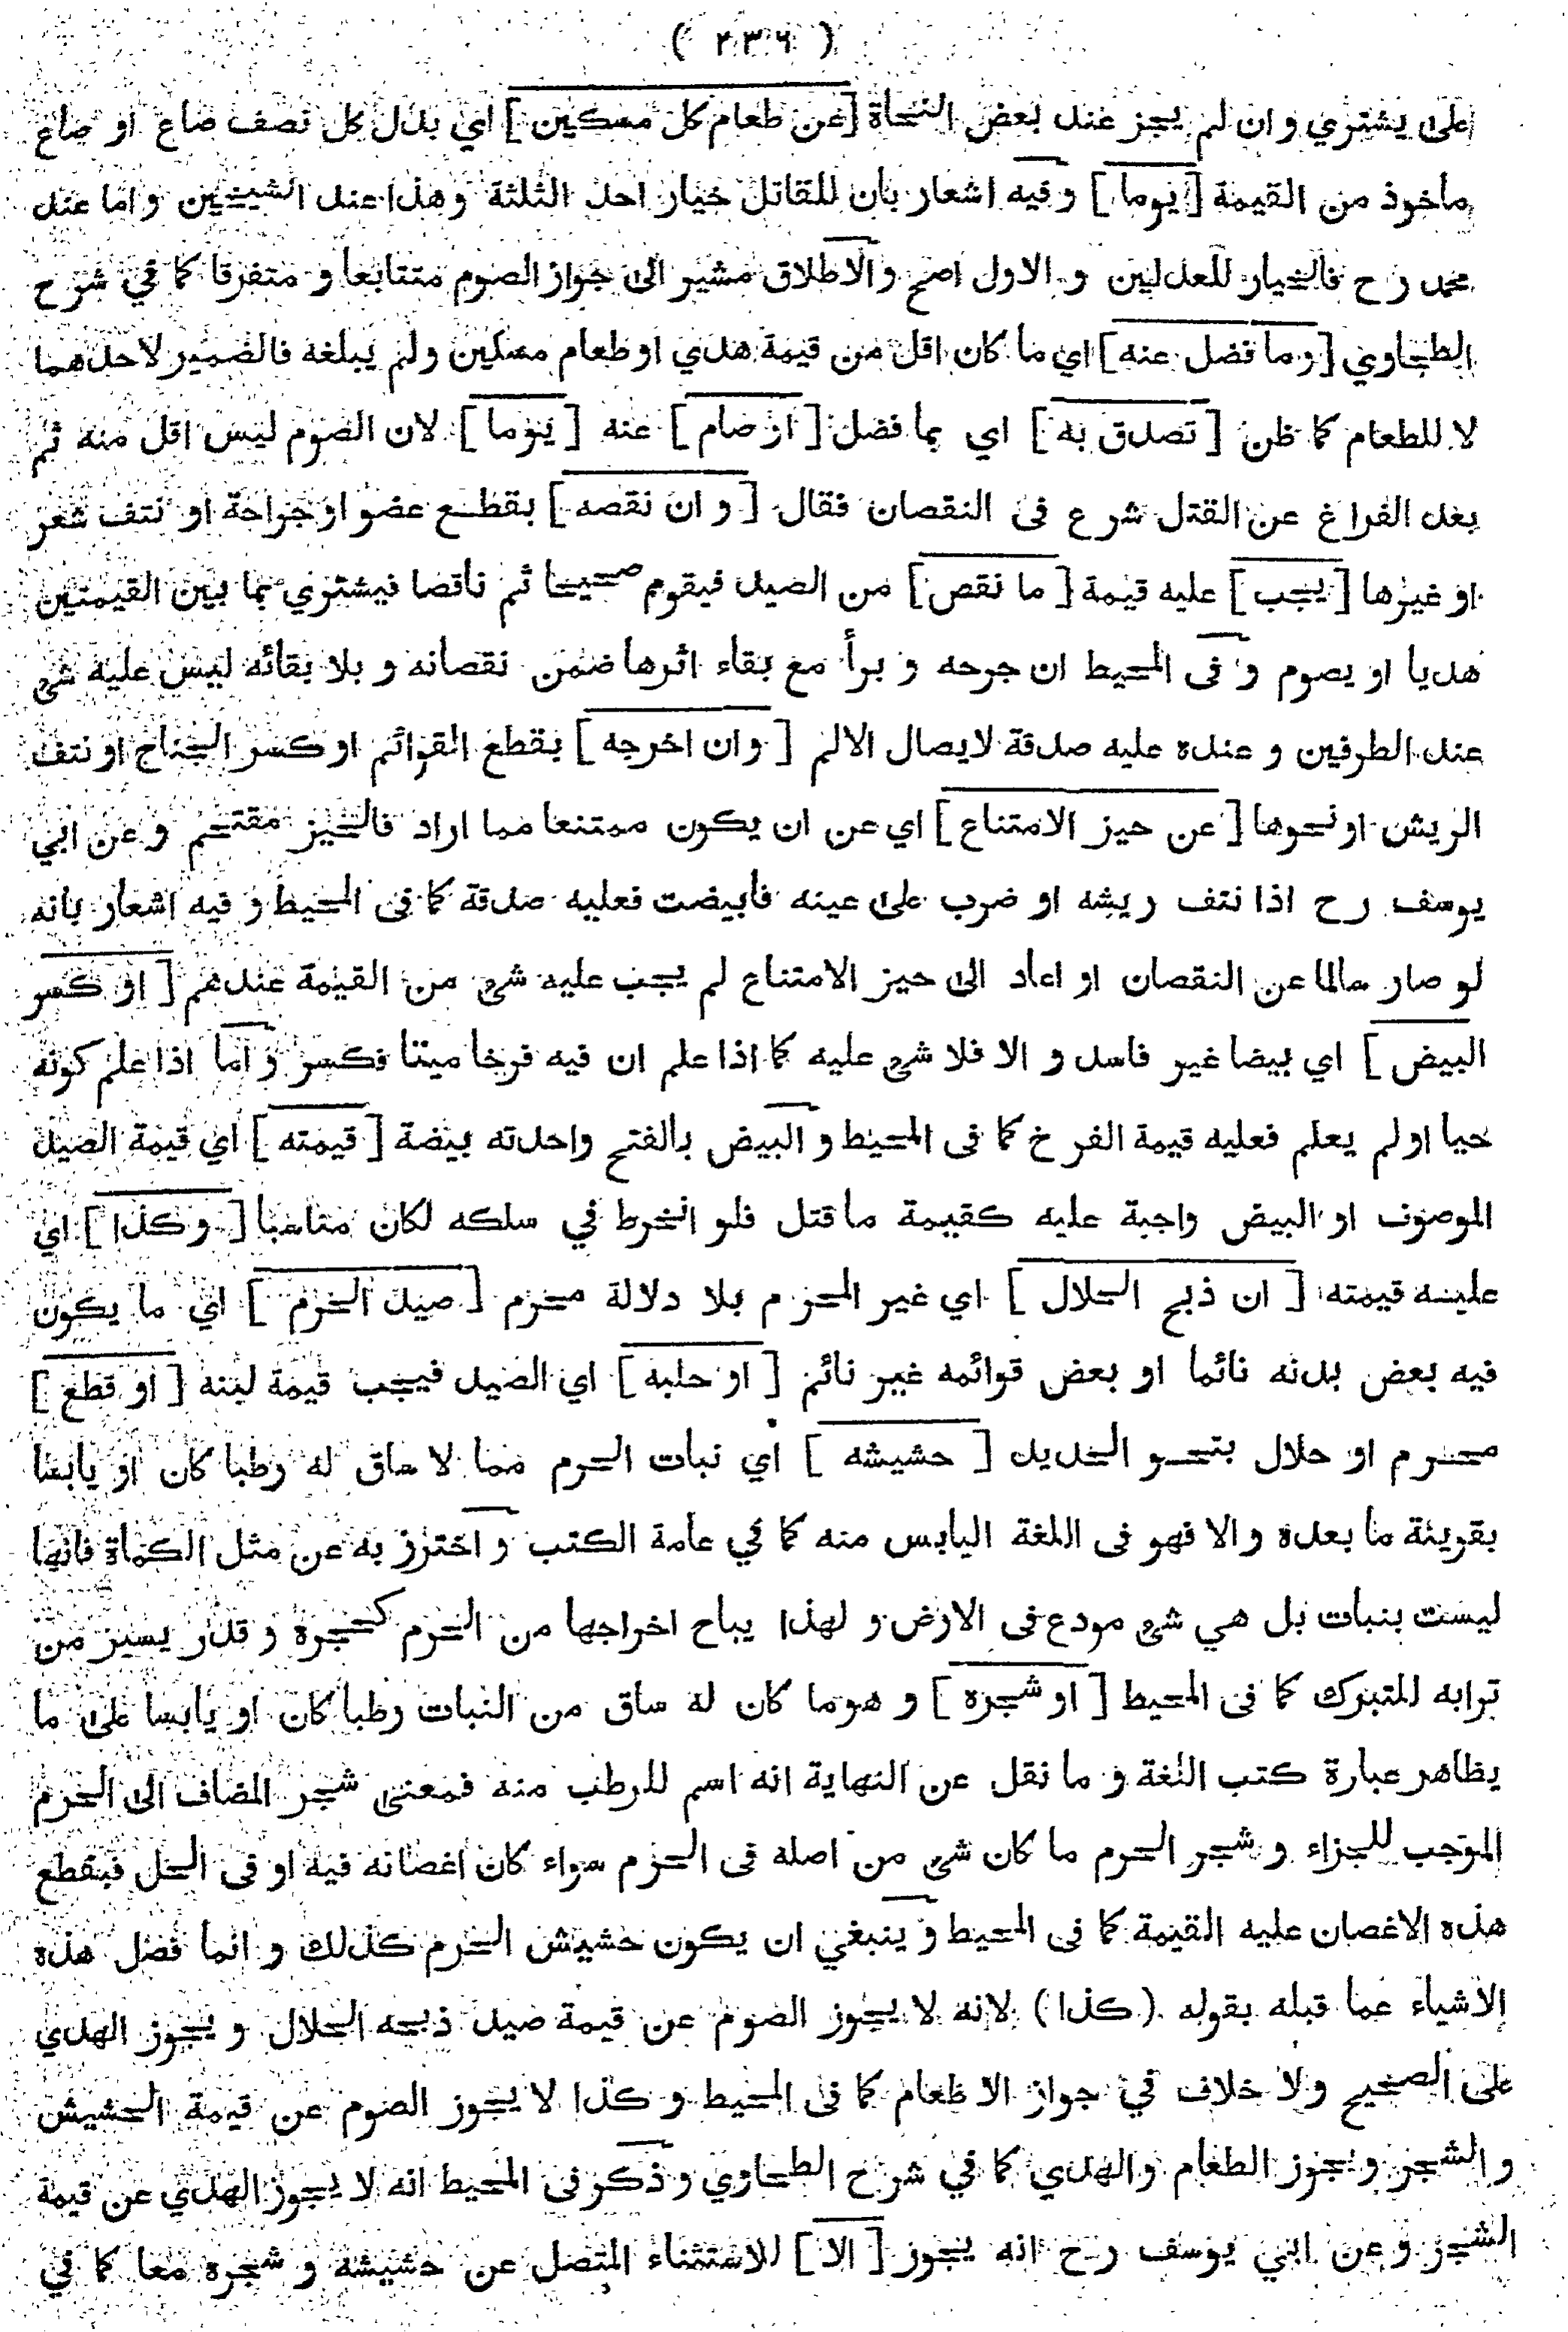 ( ٢٣٦ )
على يشتري و ان لم يجز عند بعض النحاة [عن طعام كل مسكين] اي بدل كل نصف صاع او صاع
مأخوذ من القيمة [يوما] و فيه اشعار بان للقاتل خيار احد الثلثة وهذا عند الشيخين و اما عند
محمد رح فالخيار للعدلين و الاول اصح والاطلاق مشير الى جواز الصوم متتابعا و متفرقا كما في شرح
الطحاوي [و ما فضل عنه] اي ما كان اقل من قيمة هدي او طعام مسكين ولم يبلغه فالضمير لاحدهما
لا للطعام كما ظن [تصدق به] اي بما فضل [او صام] عنه [يوما] لان الصوم ليس اقل منه ثم
بعد الفراغ عن القتل شرع فى النقصان فقال [و ان نقصه] بقطع عضو او جراحة او نتف شعر
او غيرها [يجب] عليه قيمة [ما نقص] من الصيد فيقوم صحيحا ثم ناقصا فيشتري بما بين القيمتين
هديا او يصوم و فى المحيط ان جرحه و برأ مع بقاء اثرها ضمن نقصانه و بلا بقائه ليس عليه شئ
عند الطرفين و عنده عليه صدقة لايصال الالم [و ان اخرجه] بقطع القوائم او كسر الجناح او نتف
الريش او نحوها [عن حيز الامتناع] اي عن ان يكون ممتنعا مما اراد فالحيز مقتحم و عن ابي
يوسف رح اذا نتف ريشه او ضرب على عينه فابيضت فعليه صدقة كما فى المحيط و فيه اشعار بانه
لو صار سالما عن النقصان او اعاد الى حيز الامتناع لم يجب عليه شئ من القيمة عندهم [او كسر
البيض] اي بيضا غير فاسد و الا فلا شئ عليه كما اذا علم ان فيه فرخا ميتا فكسر و اما اذا علم كونه
حيا او لم يعلم فعليه قيمة الفرخ كما فى المحيط و البيض بالفتح واحدته بيضة [قيمته] اي قيمة الصيد
الموصوف او البيض واجبة عليه كقيمة ما قتل فلو انخرط في سلكه لكان مناسبا [و كذا] اي
عليه قيمته [ان ذبح الحلال] اي غير المحرم بلا دلالة محرم [صيد الحرم] اي ما يكون
فيه بعض بدنه نائما او بعض قوائمه غير نائم [او حلبه] اي الصيد فيجب قيمة لبنه [او قطع]
محرم او حلال بنحو الحديد [حشيشه] اي نبات الحرم مما لا ساق له رطبا كان او يابسا
بقرينة ما بعده و الا فهو فى اللغة اليابس منه كما في عامة الكتب و احترز به عن مثل الكمأة فانها
ليست بنبات بل هي شئ مودع فى الارض و لهذا يباح اخراجها من الحرم كحجرة و قدر يسير من
ترابه للتبرك كما فى المحيط [او شجره] و هو ما كان له ساق من النبات رطبا كان او يابسا على ما
يظاهر عبارة كتب اللغة و ما نقل عن النهاية انه اسم للرطب منه فمعنى شجر المضاف الى الحرم
الموجب للجزاء و شجر الحرم ما كان شئ من اصله فى الحرم سواء كان اغصانه فيه او فى الحل فبقطع
هذه الاغصان عليه القيمة كما فى المحيط و ينبغي ان يكون حشيش الحرم كذلك و انما فصل هذه
الاشياء عما قبله بقوله (كذا) لانه لا يجوز الصوم عن قيمة صيد ذبحه الحلال و يجوز الهدي
على الصحيح ولا خلاف في جواز الاطعام كما فى المحيط و كذا لا يجوز الصوم عن قيمة الحشيش
و الشجر و يجوز الطعام والهدي كما في شرح الطحاوي و ذكر فى المحيط انه لا يجوز الهدي عن قيمة
الشجر و عن ابي يوسف رح انه يجوز [الا] للاستثناء المتصل عن حشيشه و شجره معا كما في